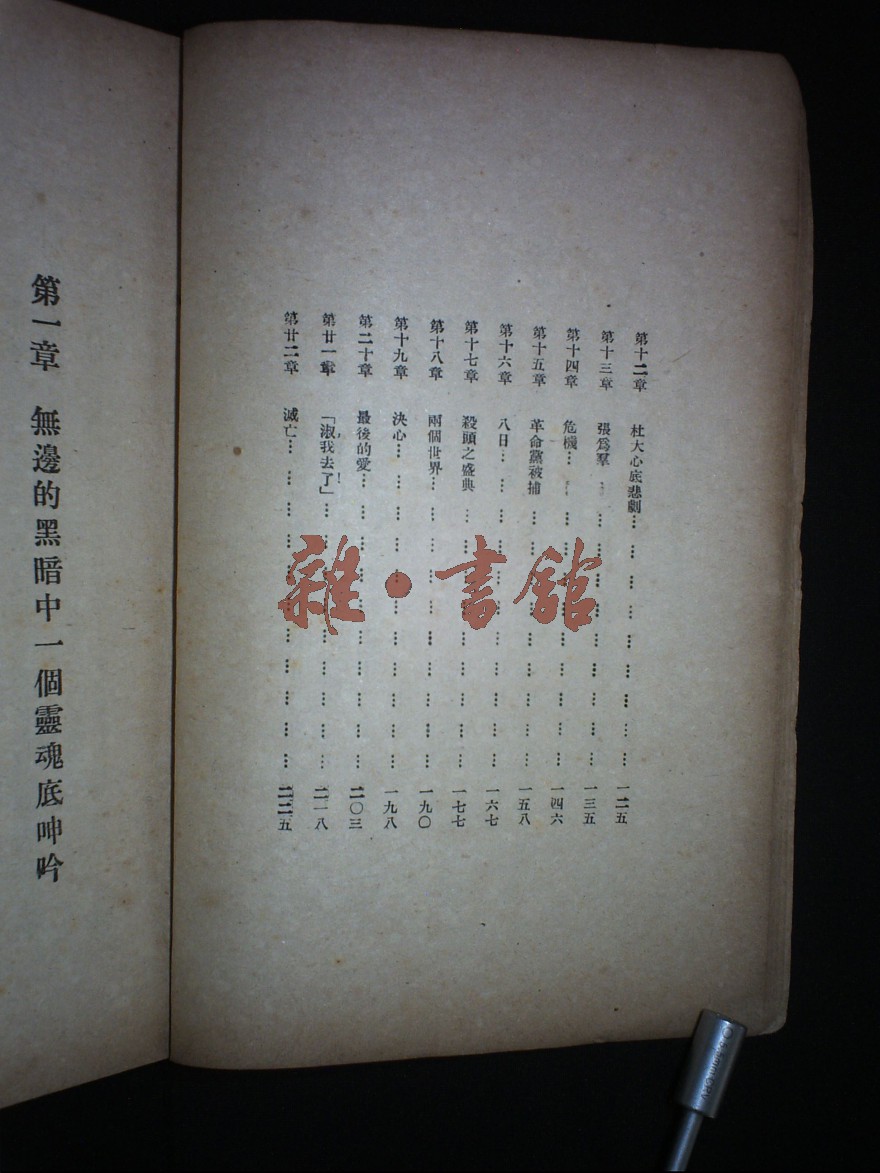 第十二章　杜大心底悲劇… … … … … … … …一二五
第十三章　張爲羣… … … … … … … …一三五
第十四章　危機… … … … … … … … …一四六
第十五章　革命黨被捕… … … … … … … …一五八
第十六章　八日… … … … … … … … …一六七
第十七章　殺頭之盛典… … … … … … … …一七七
第十八章　兩個世界… … … … … … … … …一九〇
第十九章　決心… … … … … … … … … …一九八
第二十章　最後的愛… … … … … … … … …二〇三
第廿一章　「淑，我去了！」… … … … … … … …二一八
第廿二章　滅亡… … … … … … … … … …二二五
第一章　無邊的黑暗中一個靈魂底呻吟
雜·書舘